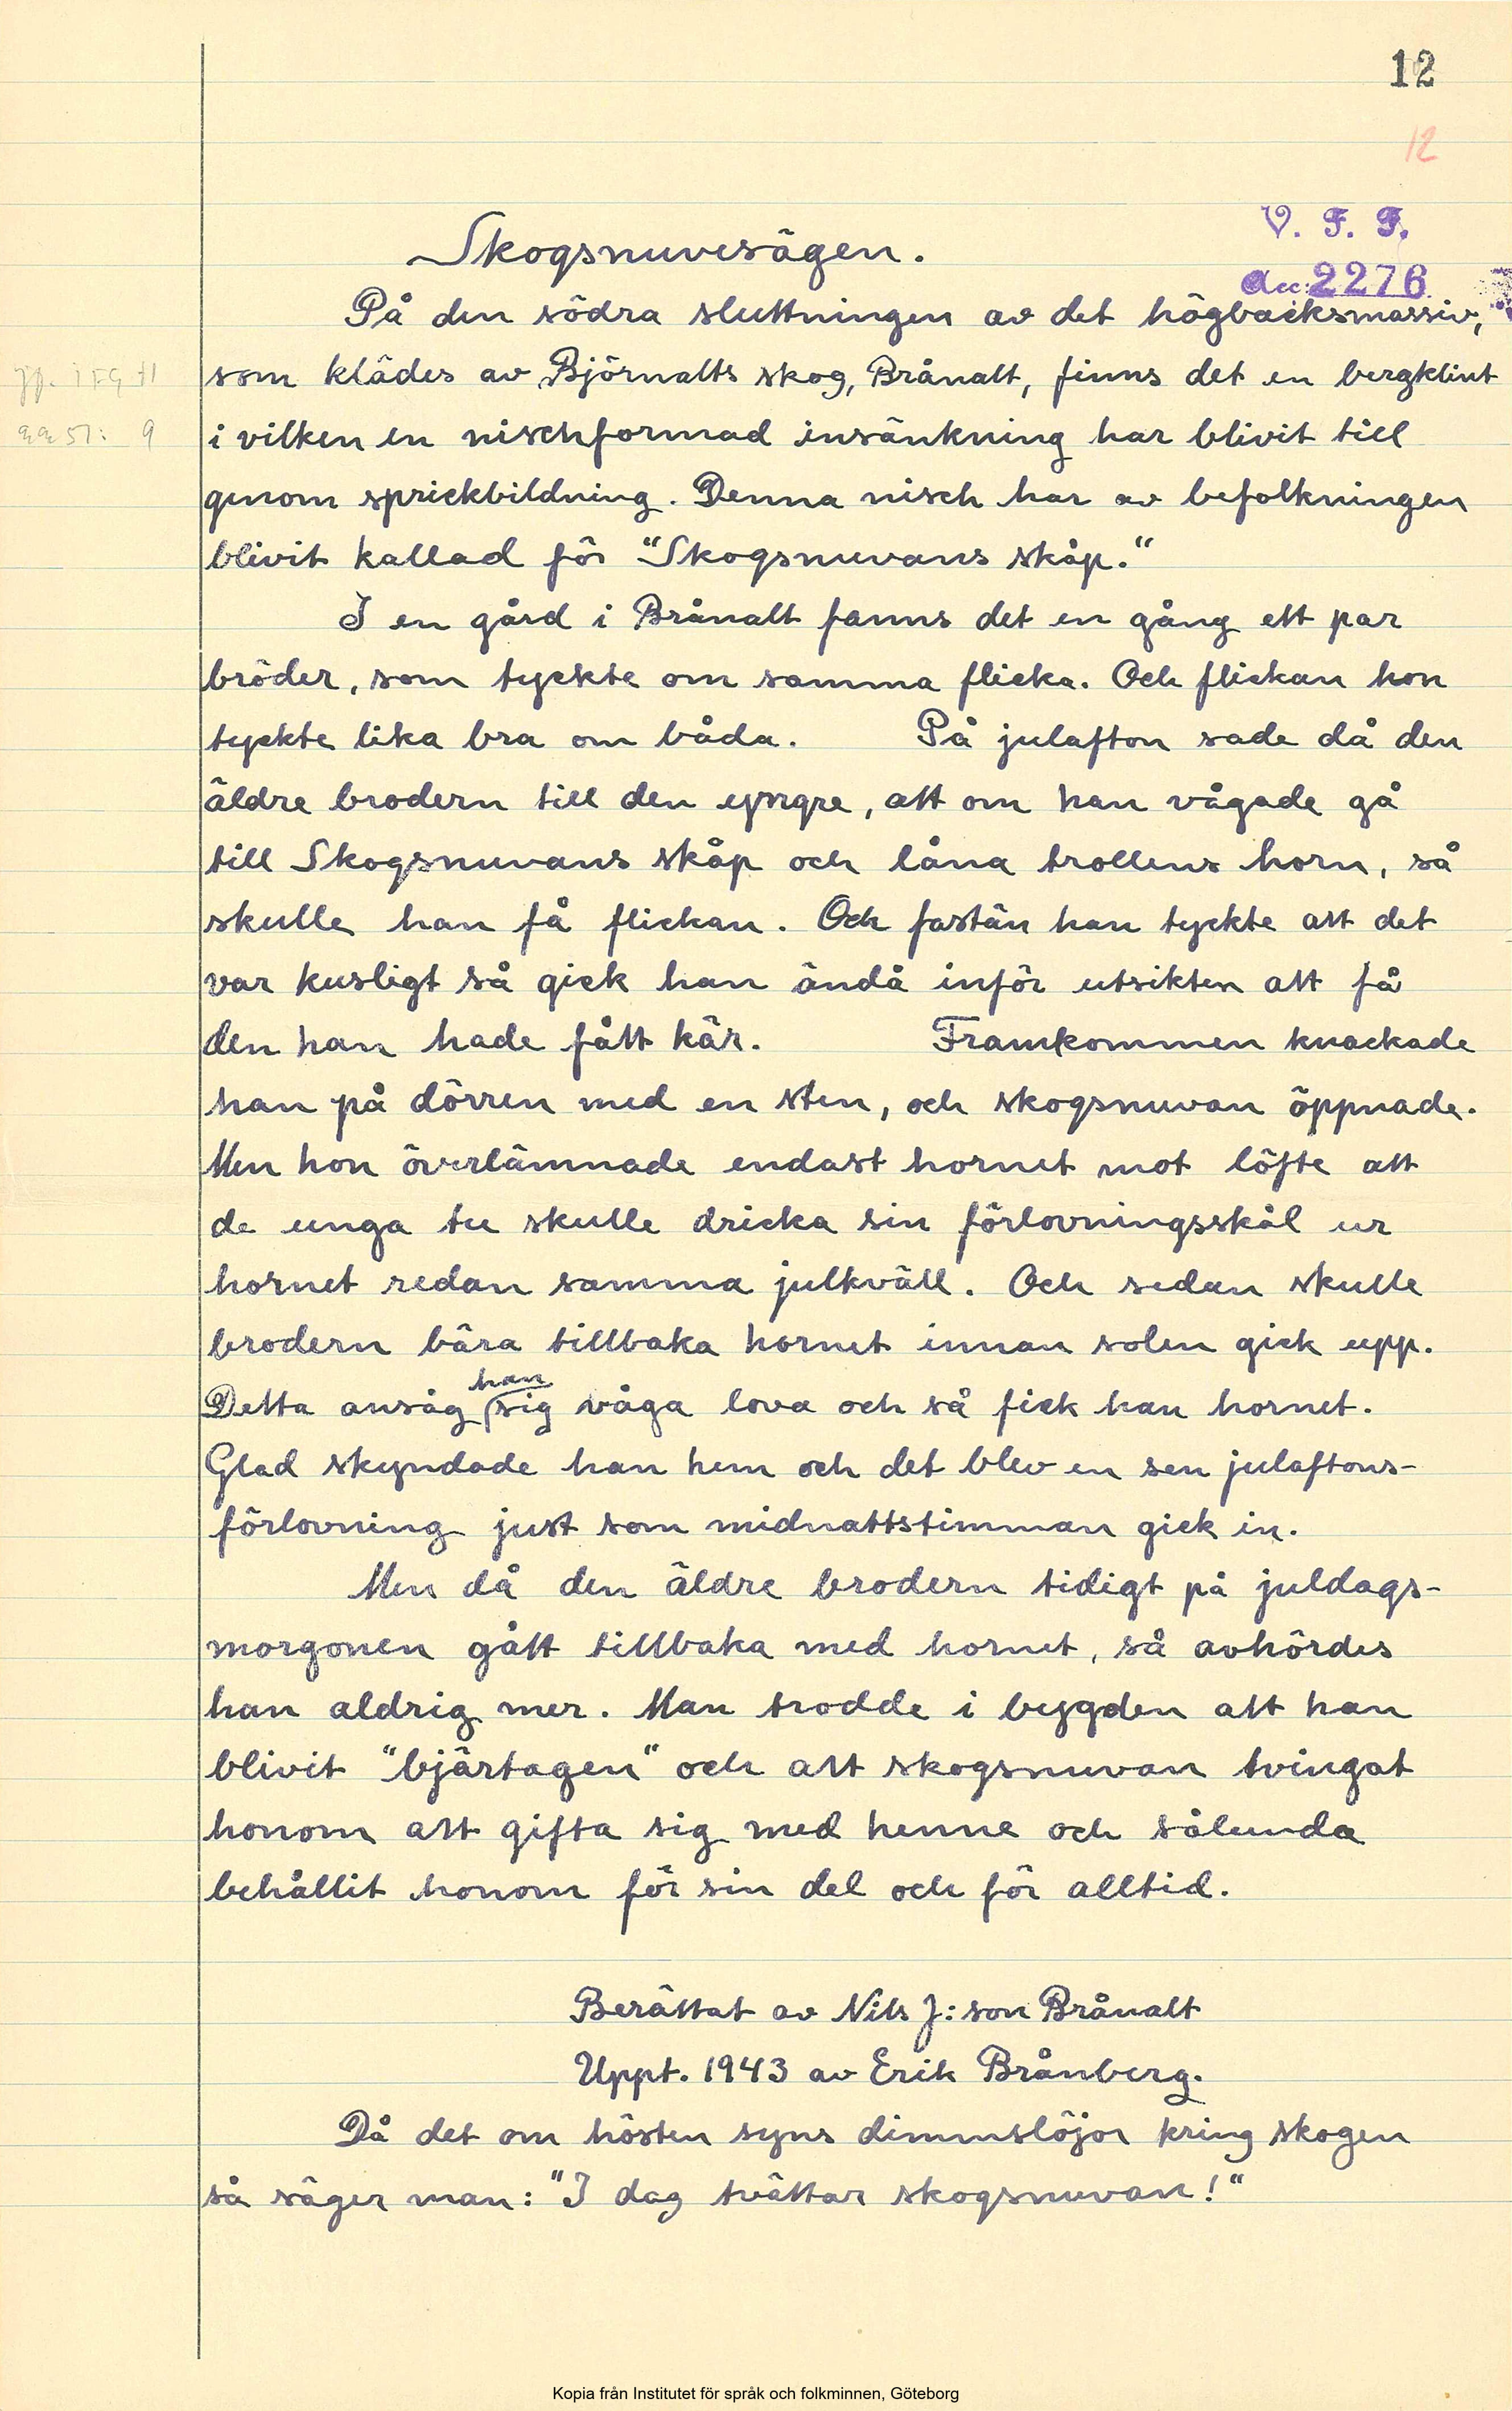 12
12
V. F. F.
Acc: 2276
Skogsnuvesägen.
På den södra sluttningen av det högbacksmassiv,
som klädes av Björnalts skog, Brånalt, finns det en bergklint
i vilken en nischformad insänkning har blivit till
genom sprickbildning. Denna nisch har av befolkningen
blivit kallad för "Skogsnuvans skåp."
I en gård i Brånalt fanns det en gång ett par
bröder, som tyckte om samma flicka. Och flickan hon
tyckte lika bra om båda. På julafton sade då den
äldre brodern till den yngre, att om han vågade gå
till Skogsnuvans skåp och låna trollens horn, så
skulle han få flickan. Och fastän han tyckte att det
var kusligt så gick han ändå inför utsikten att få
den han hade fått kär. Framkommen knackade
han på dörren med en sten, och skogsnuvan öppnade.
Men hon överlämnade endast hornet mot löfte att
de unga tu skulle dricka sin förlovningsskål ur
hornet redan samma julkväll. Och sedan skulle
brodern bära tillbaka hornet innan solen gick upp.
Detta ansåg han sig våga lova och så fick han hornet.
Glad skyndade han hem och det blev en sen julaftons-
förlovning just som midnattstimman gick in.
Men då den äldre brodern tidigt på juldags-
morgonen gått tillbaka med hornet, så avhördes
han aldrig mer. Man trodde i bygden att han
blivit "bjärtagen" och att skogsnuvan tvingat
honom att gifta sig med henne och sålunda
behållit honom för sin del och för alltid.
Berättat av Nils J:son Brånalt
Uppt. 1943 av Erik Brånberg.
Då det om hösten syns dimmslöjor kring skogen
så säger man: "I dag tvättar skogsnuvan!"
Kopia från Institutet för språk och folkminnen, Göteborg